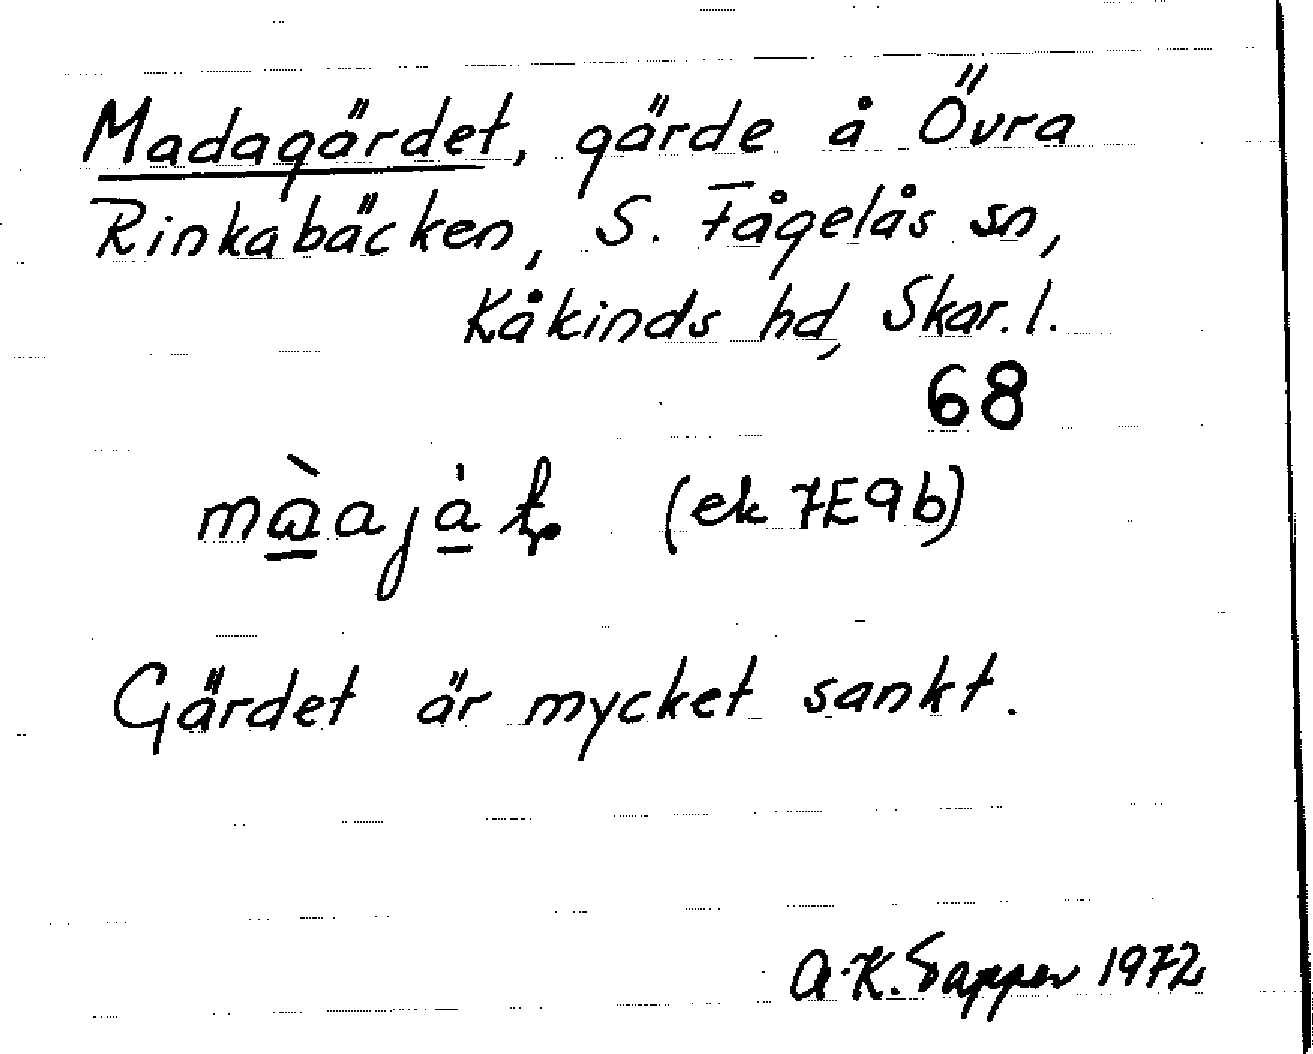 Madagärdet, gärde å Övra
Rinkabäcken, S. Fågelås sn,
Kåkinds hd, Skar. l.
68
(ek 7E9b)
Gärdet är mycket sankt.
A-K. Sapper 1972